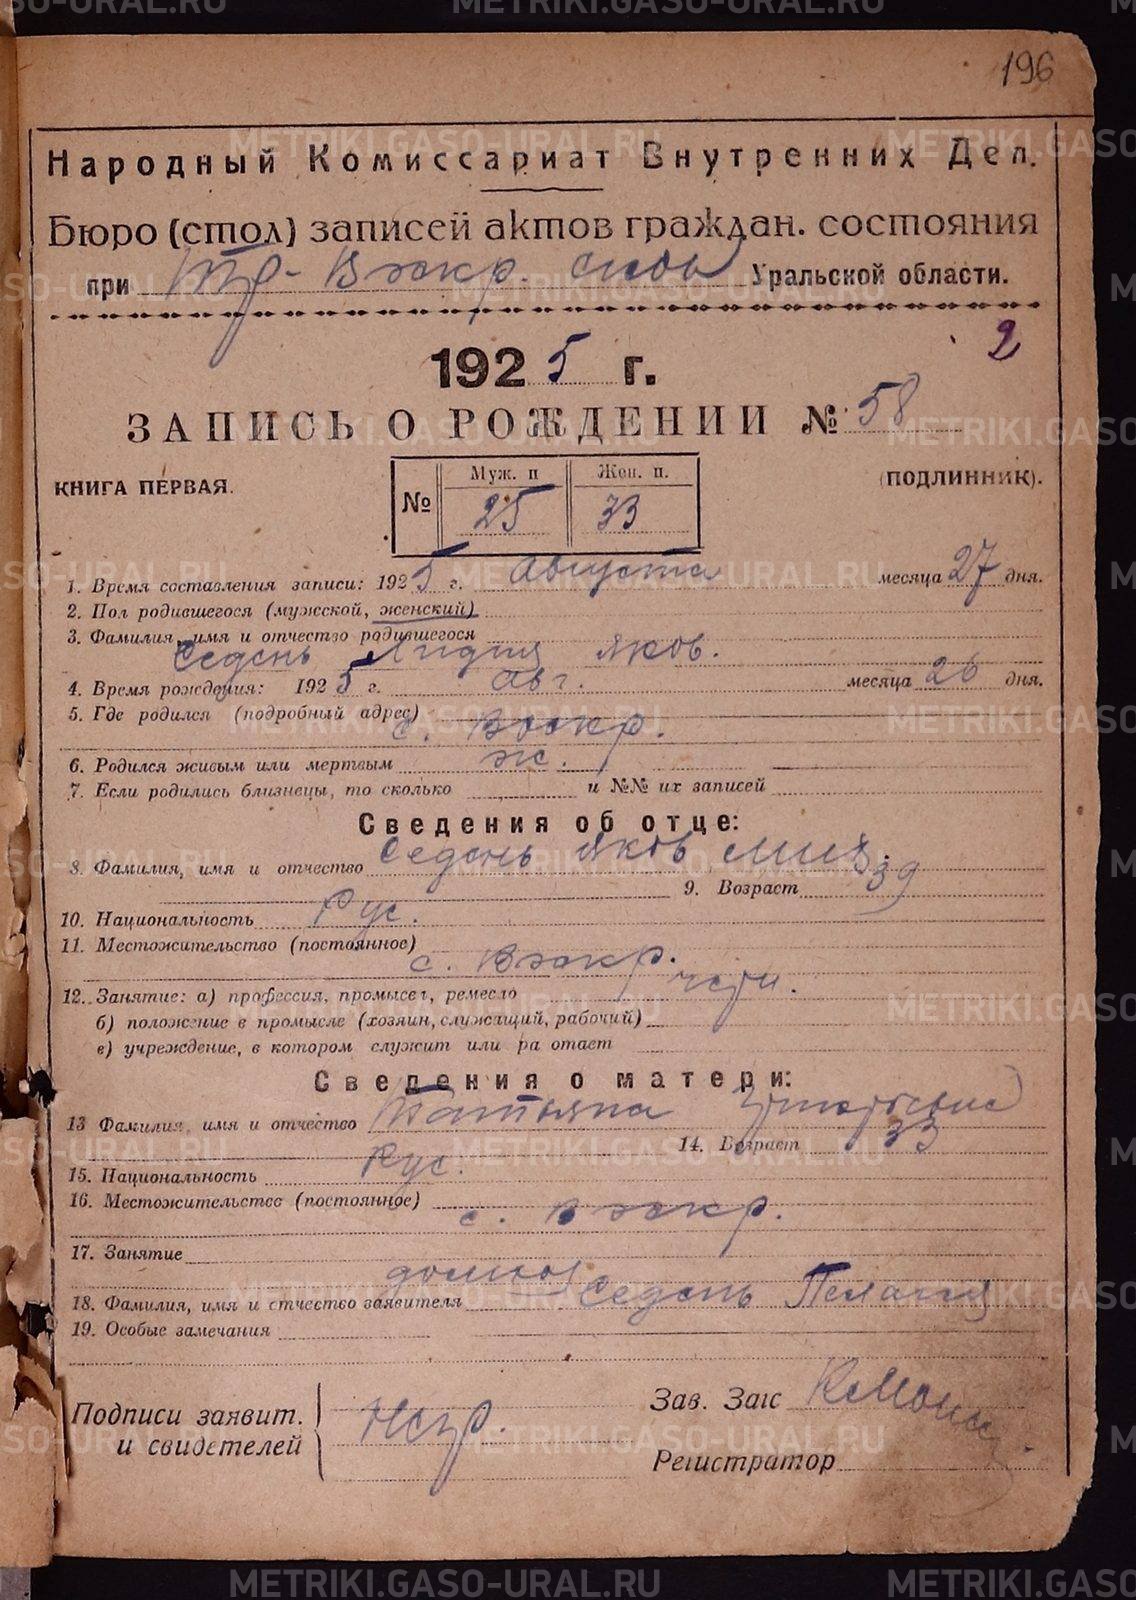 196
Народный Комиссариат Внутренних Дел.
Бюро (стол) записей актов граждан. состояния
при Тр-Вскр. Уральской области.
2
1925 г.
ЗАПИСЬ О РОЖДЕНИИ № 58
КНИГА ПЕРВАЯ. (ПОДЛИННИК).
Муж. п Жен. п.
№ 25 33
1. Время составления записи: 1925 г. Августа месяца 27 дня.
2. Пол родившегося (мужской, женский)
3. Фамилия, имя и отчество родившегося
Седень Лидия Яков.
4. Время рождения: 1925 г. Авг. месяца 26 дня.
5. Где родился (подробный адрес)
с. Воскр.
6. Родился живым или мертвым ж.
7. Если родились близнецы, то сколько и №№ их записей
Сведения об отце:
8. Фамилия, имя и отчество Седень Яков Мих.
9. Возраст 39
10. Национальность Рус.
11. Местожительство (постоянное)
с. Вскр.
12. Занятие: а) профессия, промысел, ремесло
б) положение в промысле (хозяин, служащий, рабочий)
в) учреждение, в котором служит или ра отает
Сведения о матери:
13 Фамилия, имя и отчество Татьяна
14. Возраст 33
15. Национальность Рус.
16. Местожительство (постоянное)
с. Вскр.
17. Занятие
домхоз
18. Фамилия, имя и отчество заявителя Седень Пелагия
19. Особые замечания
Подписи заявит. Негр. Зав. Загс
и свидетелей
Регистратор
METRIKI.GASO-URAL.RU